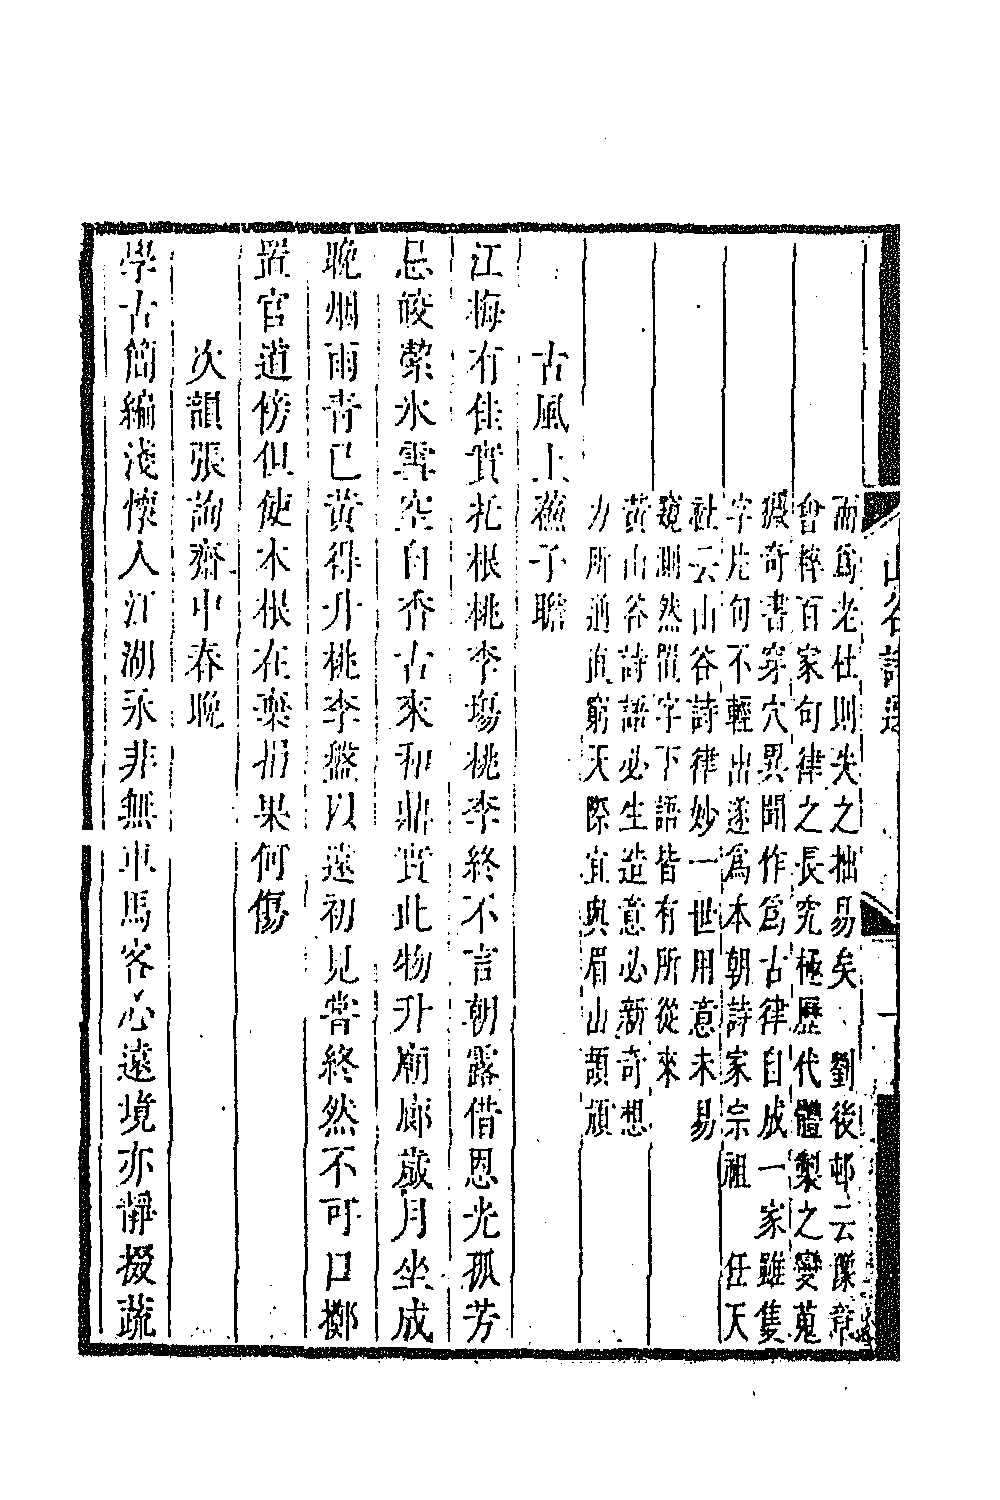 而爲老杜則失之拙易矣 劉後邨云豫章
會稡百家句律之長究極歷代體製之變蒐
獵奇書穿穴異聞作爲古律自成一家雖隻
字片句不輕出遂爲本朝詩家宗祖 任天
社云山谷詩律妙一世用意未易
窺測然置字下語皆有所從來
黃山谷詩語必生造意必新奇想
力所通直窮天際宜與眉山頡頏
古風上蘇子瞻
江梅有佳實托根桃李塲桃李終不言朝露借恩光孤芳
忌皎潔氷雪空自香古來和鼎實此物升廟廊歲月坐成
晚烟雨青已黃得升桃李盤以遠初見嘗終然不可口擲
置官道傍但使本根在棄捐果何傷
次韻張詢齋中春晚
學古簡編淺懷人江湖永非無車馬客心遠境亦靜掇蔬
山谷詩選
一